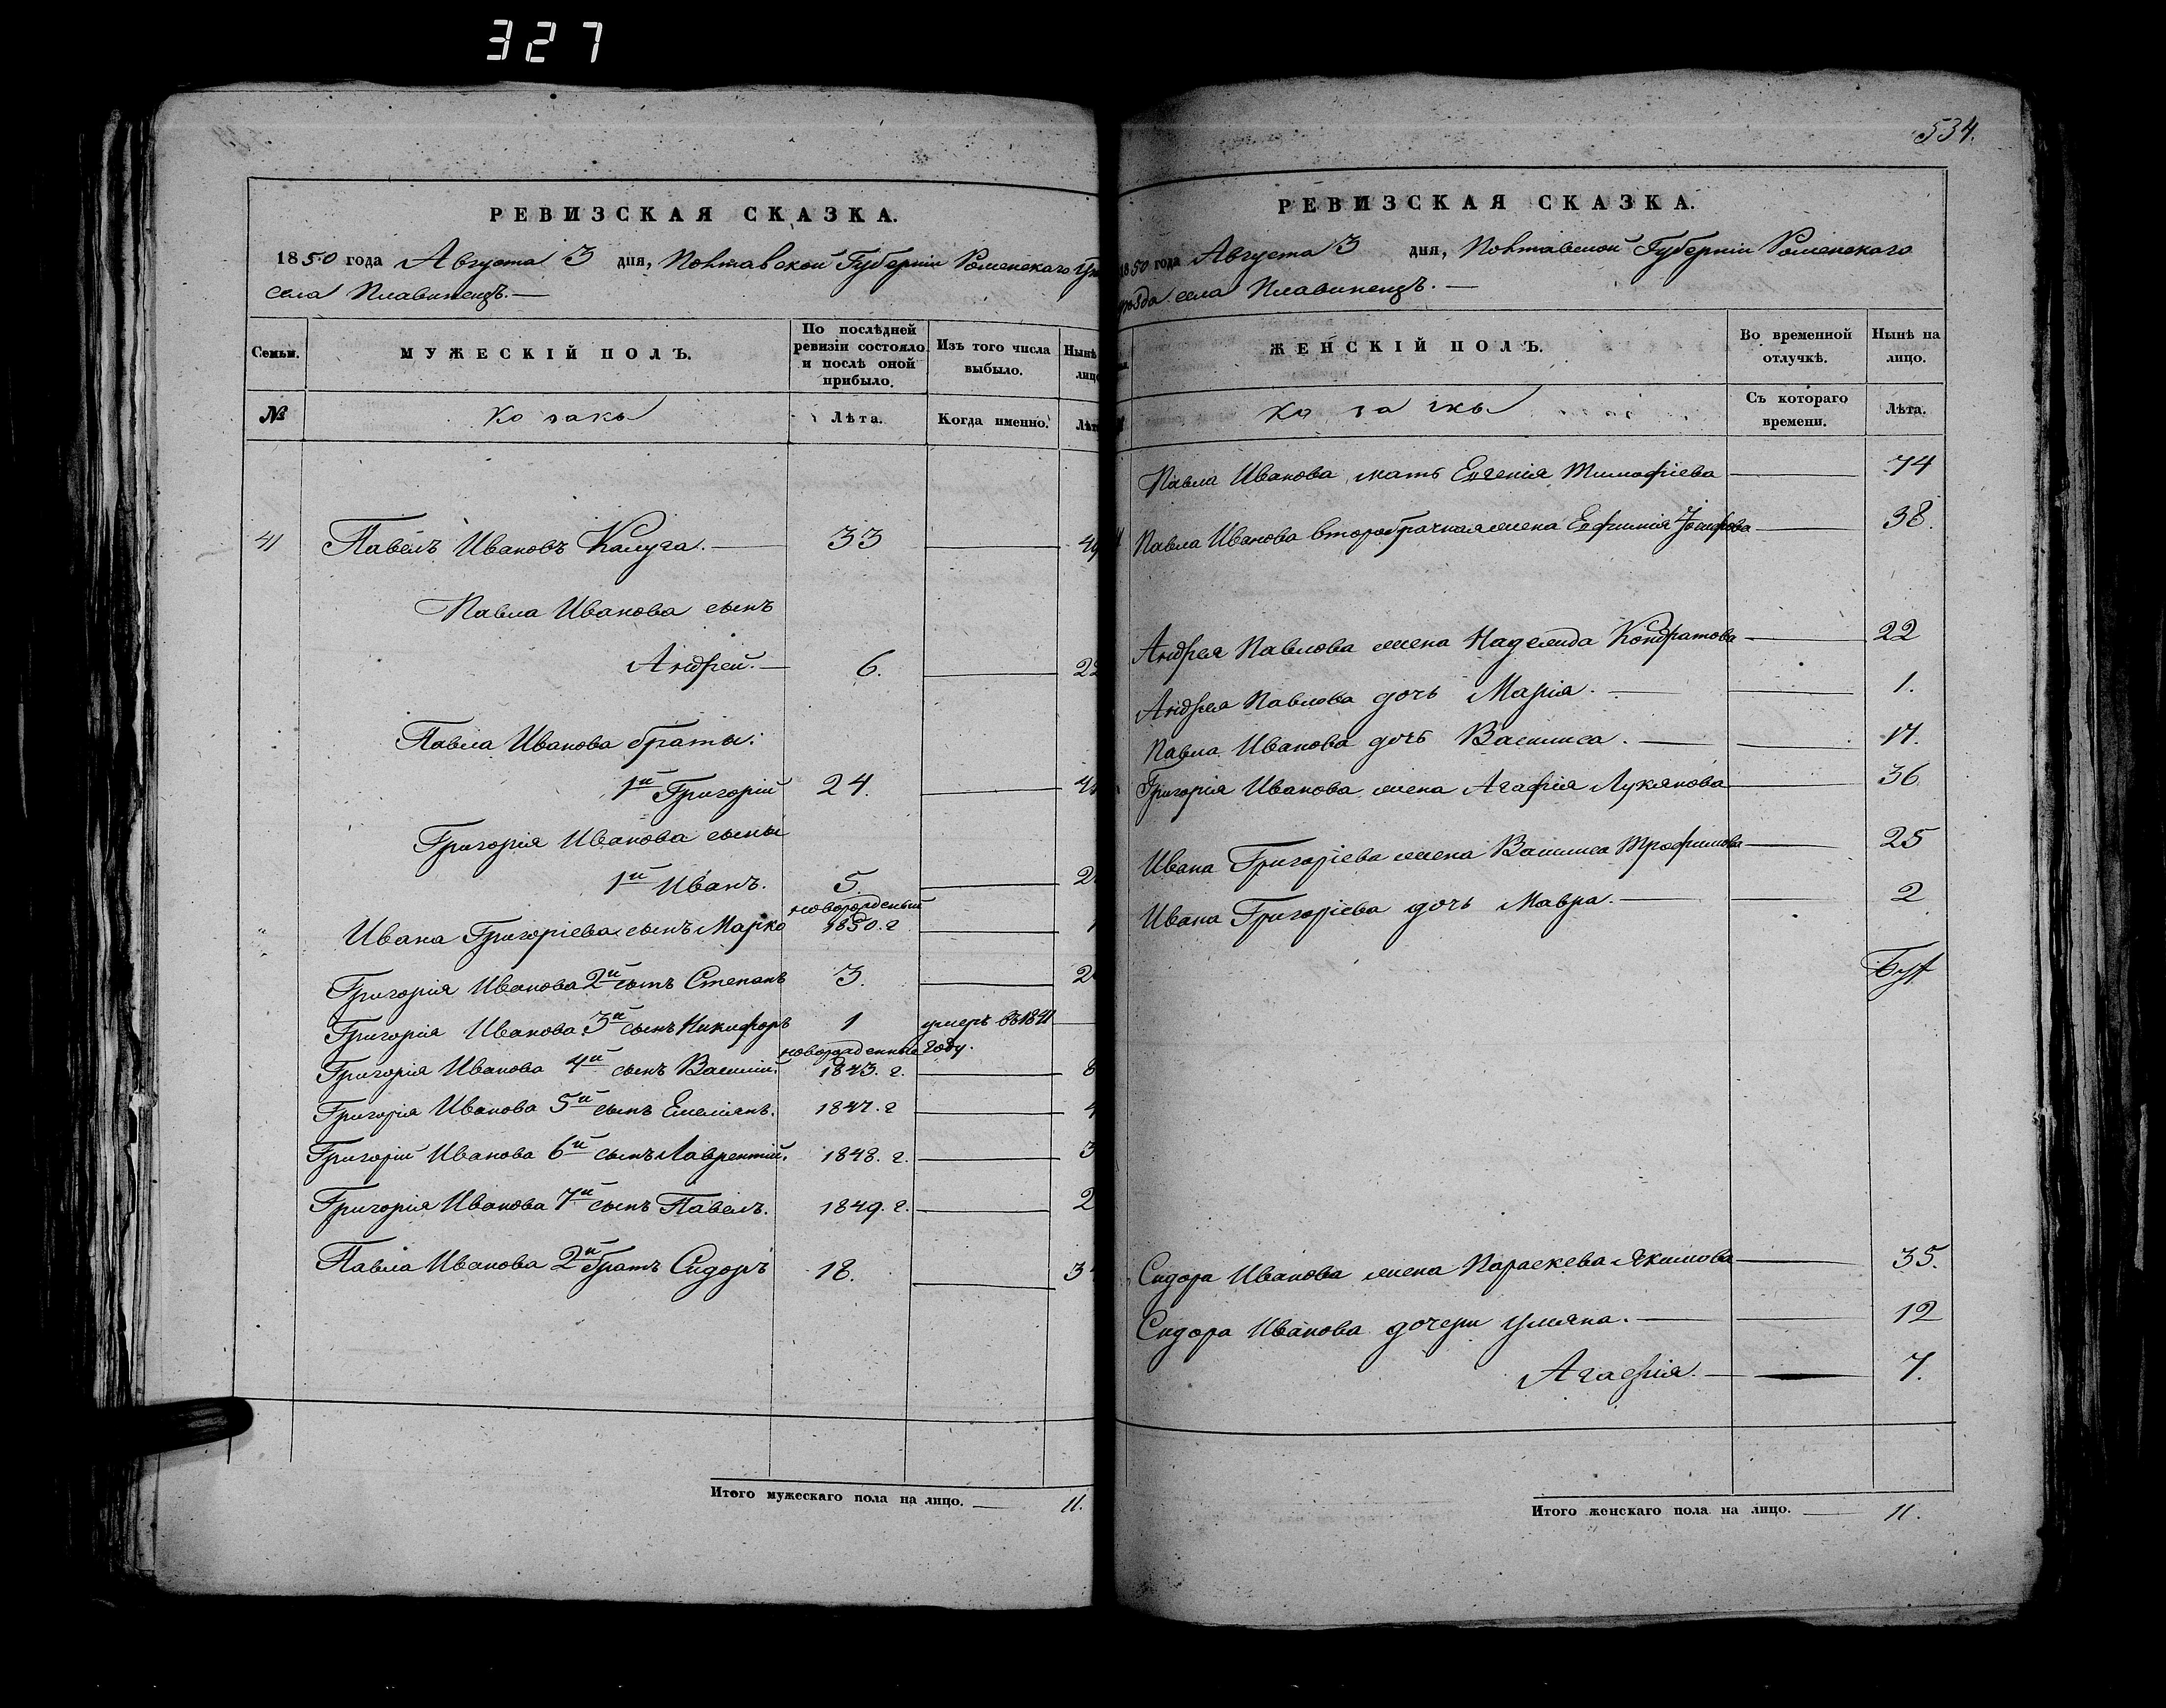 327
РЕВИЗСКАЯ СКАЗКА.
1850 года Августа 3 дня, Полтавской Губернии Роменского
села Плавинещъ.
Семьи.
МУЖЕСКІЙ ПОЛЪ.
По послѣдней ревизіи состояло и послѣ оной прибыло.
Изъ того числа выбыло.
Нынѣ
№
Козаки
Лѣта.
Когда именно.
41 Павелъ Ивановъ Калуга. 33
Павла Иванова сынъ
Андрей. 6.
Павла Иванова браты:
1й Григорій 24.
Григорія Иванова сыны
1й Иванъ. 5.
новорожденый
Ивана Григоріева сынъ Марко 1850. г
Григорія Иванова 2й сынъ Степанъ 3.
Григорія Иванова 3й сынъ Никифоръ 1 умеръ въ 1841
году.
новорожденные
Григорія Иванова 4й сынъ Василій. 1843. г. 8
Григорія Иванова 5й сынъ Емеліянъ. 1847. г 4
Григорій Иванова 6й сынъ Лаврентій. 1848. г. 3
Григорія Иванова 7й сынъ Павелъ. 1849. г. 2
Павла Иванова 2й братъ Сидоръ 18.
Итого мужескаго пола на лицо. 11.
534.
РЕВИЗСКАЯ СКАЗКА.
1850 года Августа 3 дня, Полтавской Губерніи Роменскаго
уѣзда села Плавинещъ.
ЖЕНСКІЙ ПОЛЪ.
Во временной отлучкѣ.
Нынѣ на лицо.
Козачки
Съ котораго времени.
Лѣта.
Павла Иванова мать Евгенія Тимофіева 74
Павла Иванова второбрачная жена Евфимія Іосифова 38.
Андрея Павлова жена Надежда Кондратова 22
Андрея Павлова дочь Марія. 1.
Павла Иванова дочь Василиса. 17.
Григорія Иванова жена Агафія Лукянова 36
Ивана Григоріева жена Василиса Трофимова 25
Ивана Григоріева дочь Мавра. 2
Сидора Иванова жена Параскева Якимова 35.
Сидора Иванова дочери Уляна. 12
Агафія. 7.
Итого женскаго пола на лицо. 11.